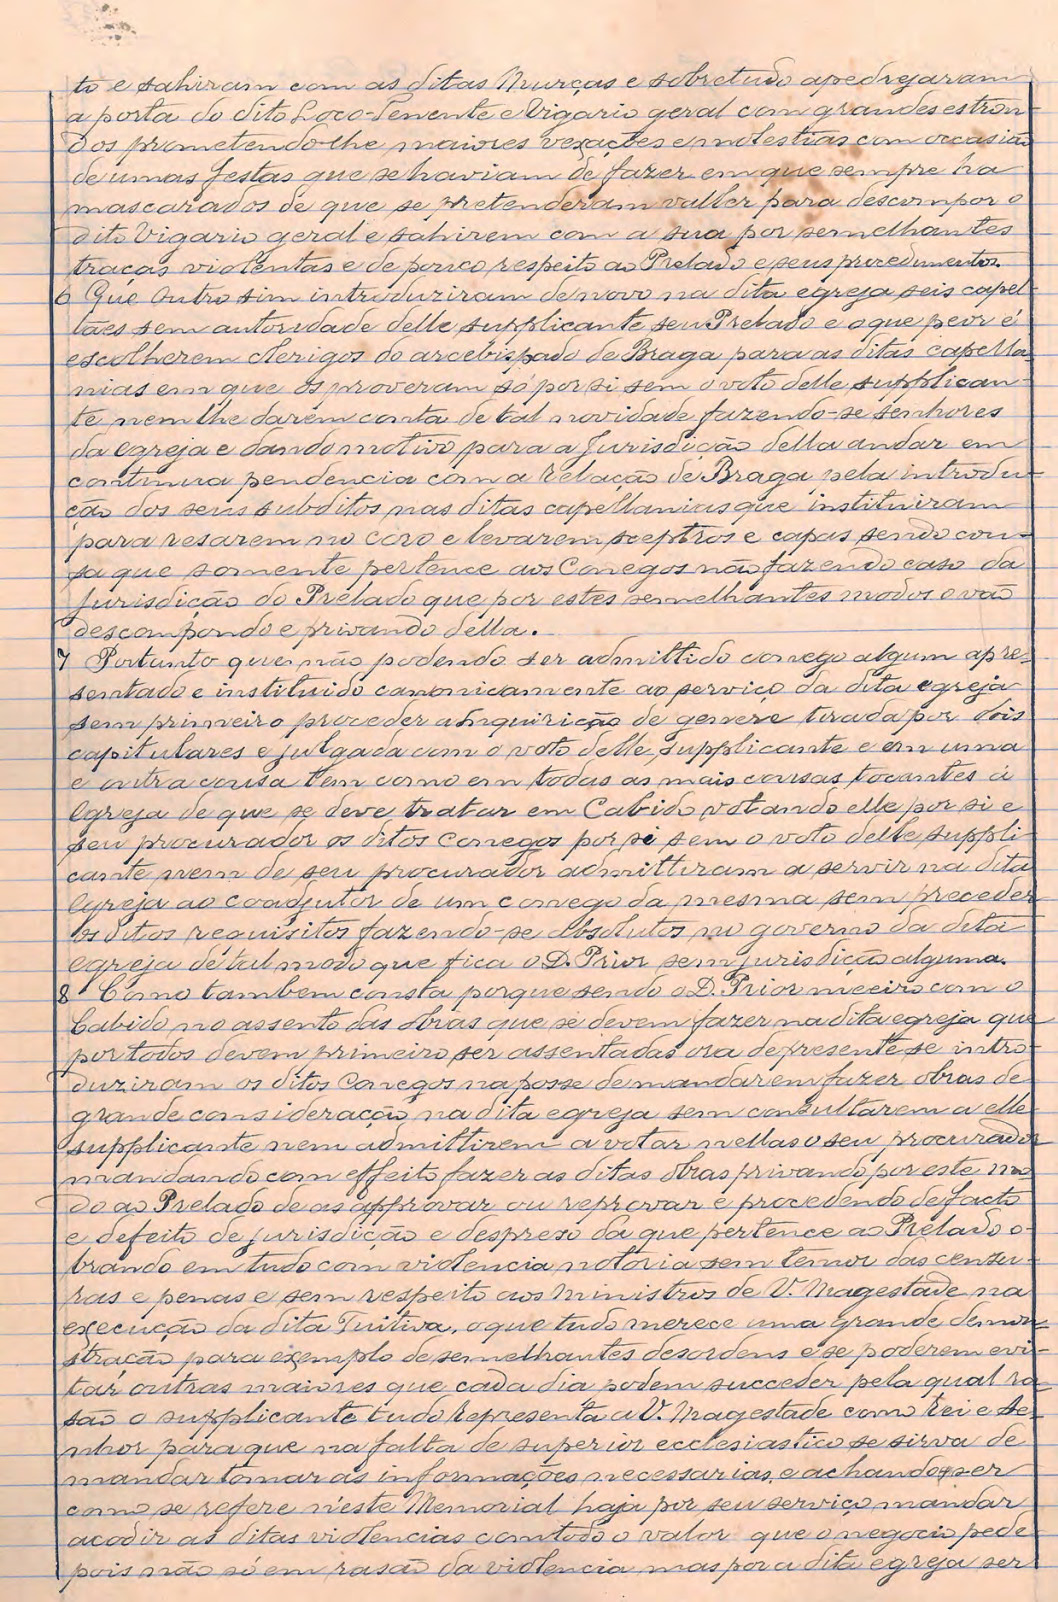 to e sahiram com as ditas Murças e sobretudo apedrejaram
a porta do dito Loco-Tenente e Vigario geral com grandes estron
dos prometendo-lhe maiores vexações e molestias com occasião
de umas festas que se haviam de fazer em que sempre ha
mascarados de que se pretenderam valler para descompor o
dito Vigario geral e sahirem com a sua por semelhantes
traças violentas e de pouco respeito ao Prelado e seus procedimentos.
6 Que outro sim introduziram de novo na dita egreja seis capel-
lães sem autoridade delle supplicante seu Prelado e o que peor é
escolherem clerigos do arcebispado de Braga para as ditas capella-
nias em que os proveram só por si sem o voto delle supplican-
te nem lhe darem conta de tal novidade fazendo-se senhores
da egreja e dando motivo para a Jurisdição della andar em
continua pendencia com a Relação de Braga pela introdu-
ção dos seus subditos nas ditas capellanias que instituiram
para resarem no coro e levarem sceptros e capas sendo cou-
sa que somente pertence aos Conegos não fazendo caso da
Jurisdição do Prelado que por estes semelhantes modos o vão
descompondo e privando della.
7 Portanto que não podendo ser admittido conego algum apre-
sentado e instituido canonicamente ao serviço da dita egreja
sem primeiro proceder a Inquirição de genere tirada por dois
capitulares e julgada com o voto delle supplicante e em uma
e outra cousa bem como em todas as mais cousas tocantes á
Egreja de que se deve tratar em Cabido votando elle por si e
seu procurador os ditos Conegos por si sem o voto delle suppli-
cante nem de seu procurador admittiram a servir na dita
Egreja ao coadjutor de um conego da mesma sem preceder
os ditos requisitos fazendo-se absolutos no governo da dita
egreja de tal modo que fica o D. Prior sem jurisdição alguma.
8 Como tambem consta porque sendo o D. Prior meeiro com o
Cabido no assento das obras que se devem fazer na dita egreja que
por todos devem primeiro ser assentadas ora de presente se intro-
duziram os ditos Conegos na posse de mandarem fazer obras de
grande consideração na dita egreja sem consultarem a elle
supplicante nem admittirem a votar nellas o seu procurador
mandando com effeito fazer as ditas obras privando por este mo-
do ao Prelado de as approvar ou reprovar e procedendo de facto
e defeito de jurisdição e despreso da que pertence ao Prelado o-
brando em tudo com violencia notoria sem temor das censu-
ras e penas e sem respeito aos Ministros de V. Magestade na
execução da dita Tuitiva. o que tudo merece uma grande demon-
stração para exemplo de semelhantes desordens e se poderem evi-
tar outras maiores que cada dia podem succeder pela qual ra-
são o supplicante tudo representa a V. Magestade como Rei e Se-
nhor para que na falta de superior ecclesiastico se sirva de
mandar tomar as informações necessarias e achando ser
como se refere n'este Memorial haja por seu serviço mandar
acodir as ditas violencias com todo o valor que o negocio pede
pois não só em rasão da violencia mas por a dita egreja ser